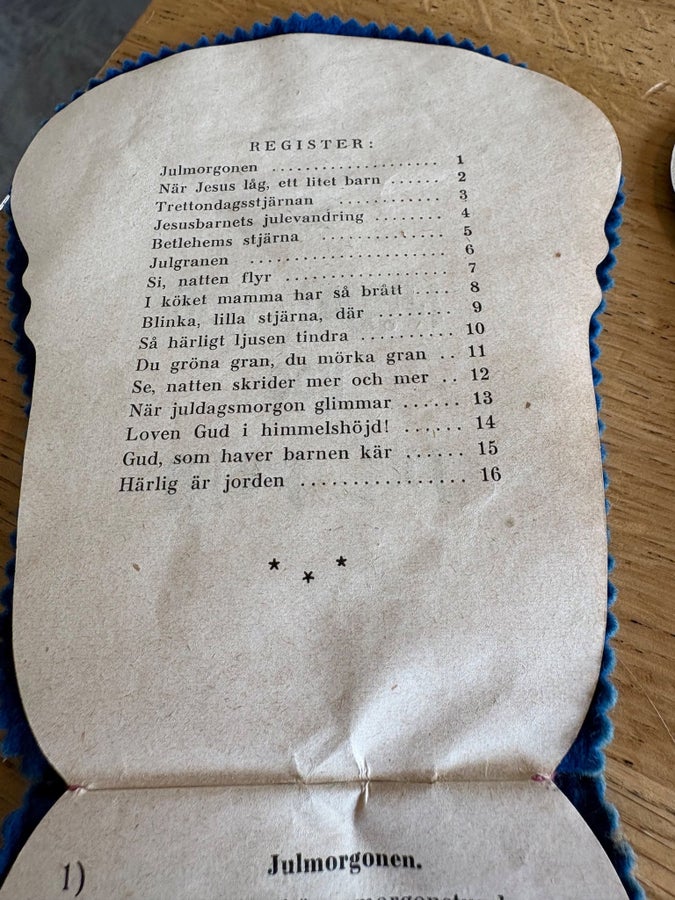 REGISTER:
Julmorgonen .................... 1
När Jesus låg, ett litet barn ...... 2
Trettondagsstjärnan ............ 3
Jesusbarnets julevandring ........ 4
Betlehems stjärna .............. 5
Julgranen ....................... 6
Si, natten flyr ................... 7
I köket mamma har så brått ..... 8
Blinka, lilla stjärna, där ......... 9
Så härligt ljusen tindra .......... 10
Du gröna gran, du mörka gran .. 11
Se, natten skrider mer och mer .. 12
När juldagsmorgon glimmar ...... 13
Loven Gud i himmelshöjd! ...... 14
Gud, som haver barnen kär ...... 15
Härlig är jorden ................ 16
* * *
1) Julmorgonen.